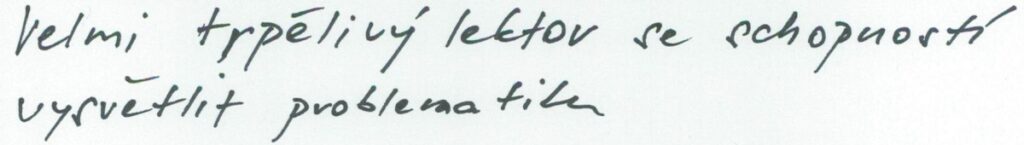 Velmi trpělivý lektor se schopností
vysvětlit problematiku